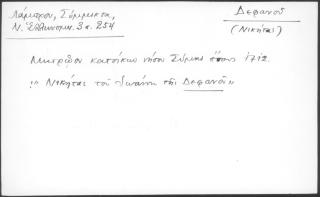 Λάμπρου, Σύμμικτα,
Ν. Ἑλληνομν. 3 σ. 254
Δεφανοῦ
(Νικήτας)
Μητρῷον κατοίκων νήσου Σύμης ἔτους 1712.
"Νικήτας τοῦ Ἰωάννη τῆς Δεφανοῦ"